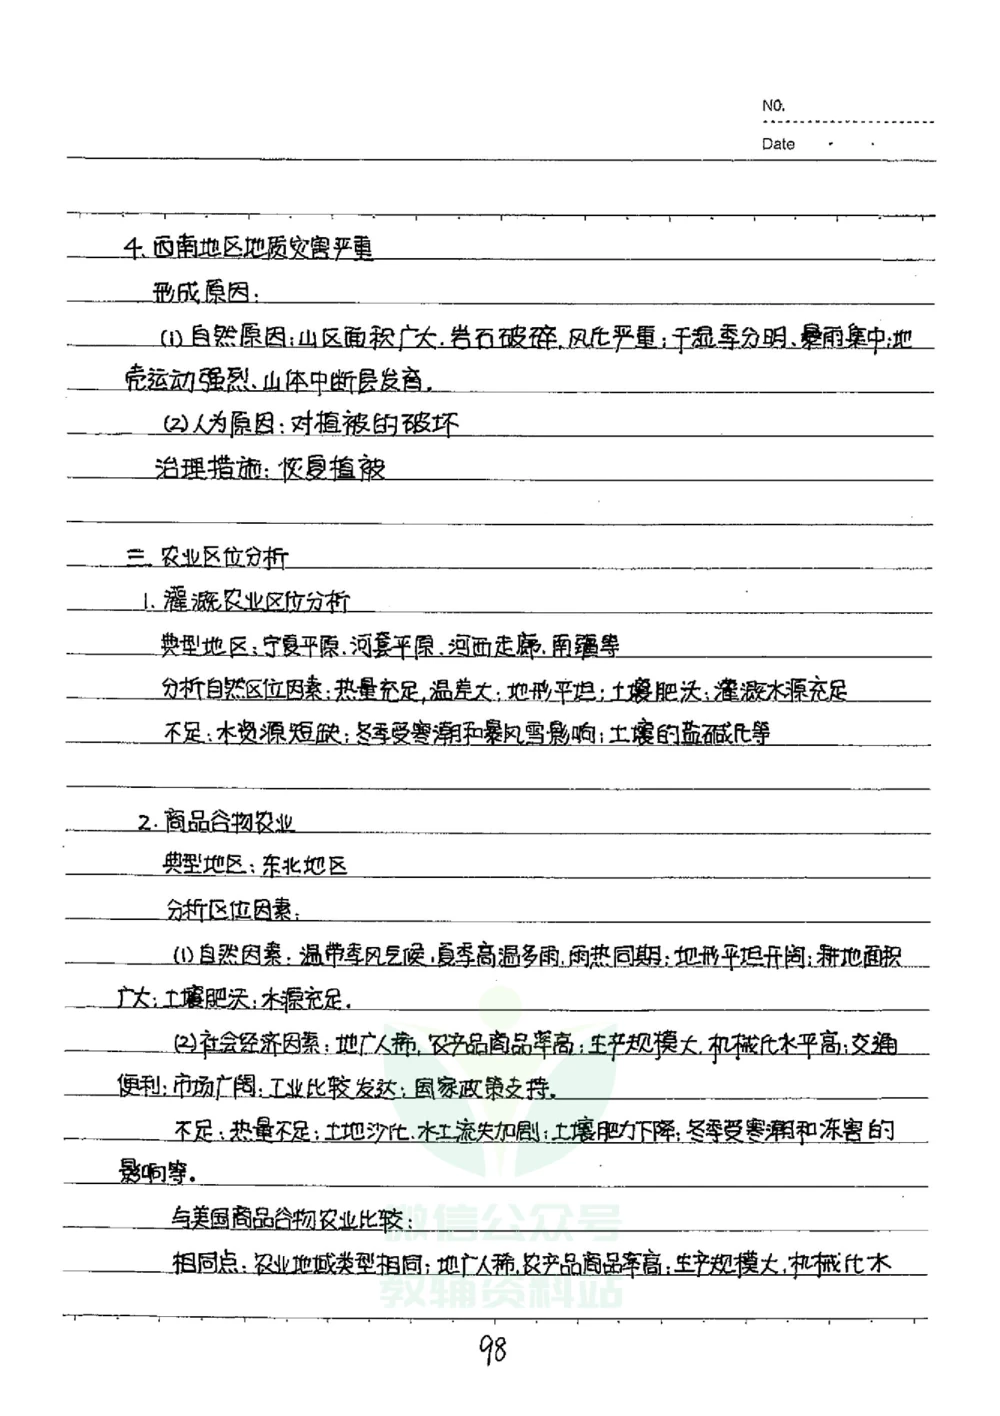 NO.
Date
4. 西南地区地质灾害严重
形成原因:
(1) 自然原因:山区面积广大.岩石破碎,风化严重;干湿季分明、暴雨集中;地
壳运动强烈、山体中断层发育.
(2)人为原因:对植被的破坏
治理措施:恢复植被
三.农业区位分析
1. 灌溉农业区位分析
典型地区:宁夏平原.河套平原.河西走廊.南疆等
分析自然区位因素:热量充足,温差大;地形平坦;土壤肥沃;灌溉水源充足
不足:水资源短缺;冬季受寒潮和暴风雪影响;土壤的盐碱化等
2. 商品谷物农业
典型地区:东北地区
分析区位因素:
(1)自然因素:温带季风气候,夏季高温多雨.雨热同期;地形平坦开阔;耕地面积
广大;土壤肥沃;水源充足.
(2)社会经济因素:地广人稀,农产品商品率高;生产规模大,机械化水平高;交通
便利;市场广阔;工业比较发达;国家政策支持。
不足:热量不足;土地沙化.水土流失加剧;土壤肥力下降;冬季受寒潮和冻害的
影响等。
与美国商品谷物农业比较:
微信公众号
相同点:农业地域类型相同;地广人稀,农产品商品率高;生产规模大,机械化水
教辅资料站
98